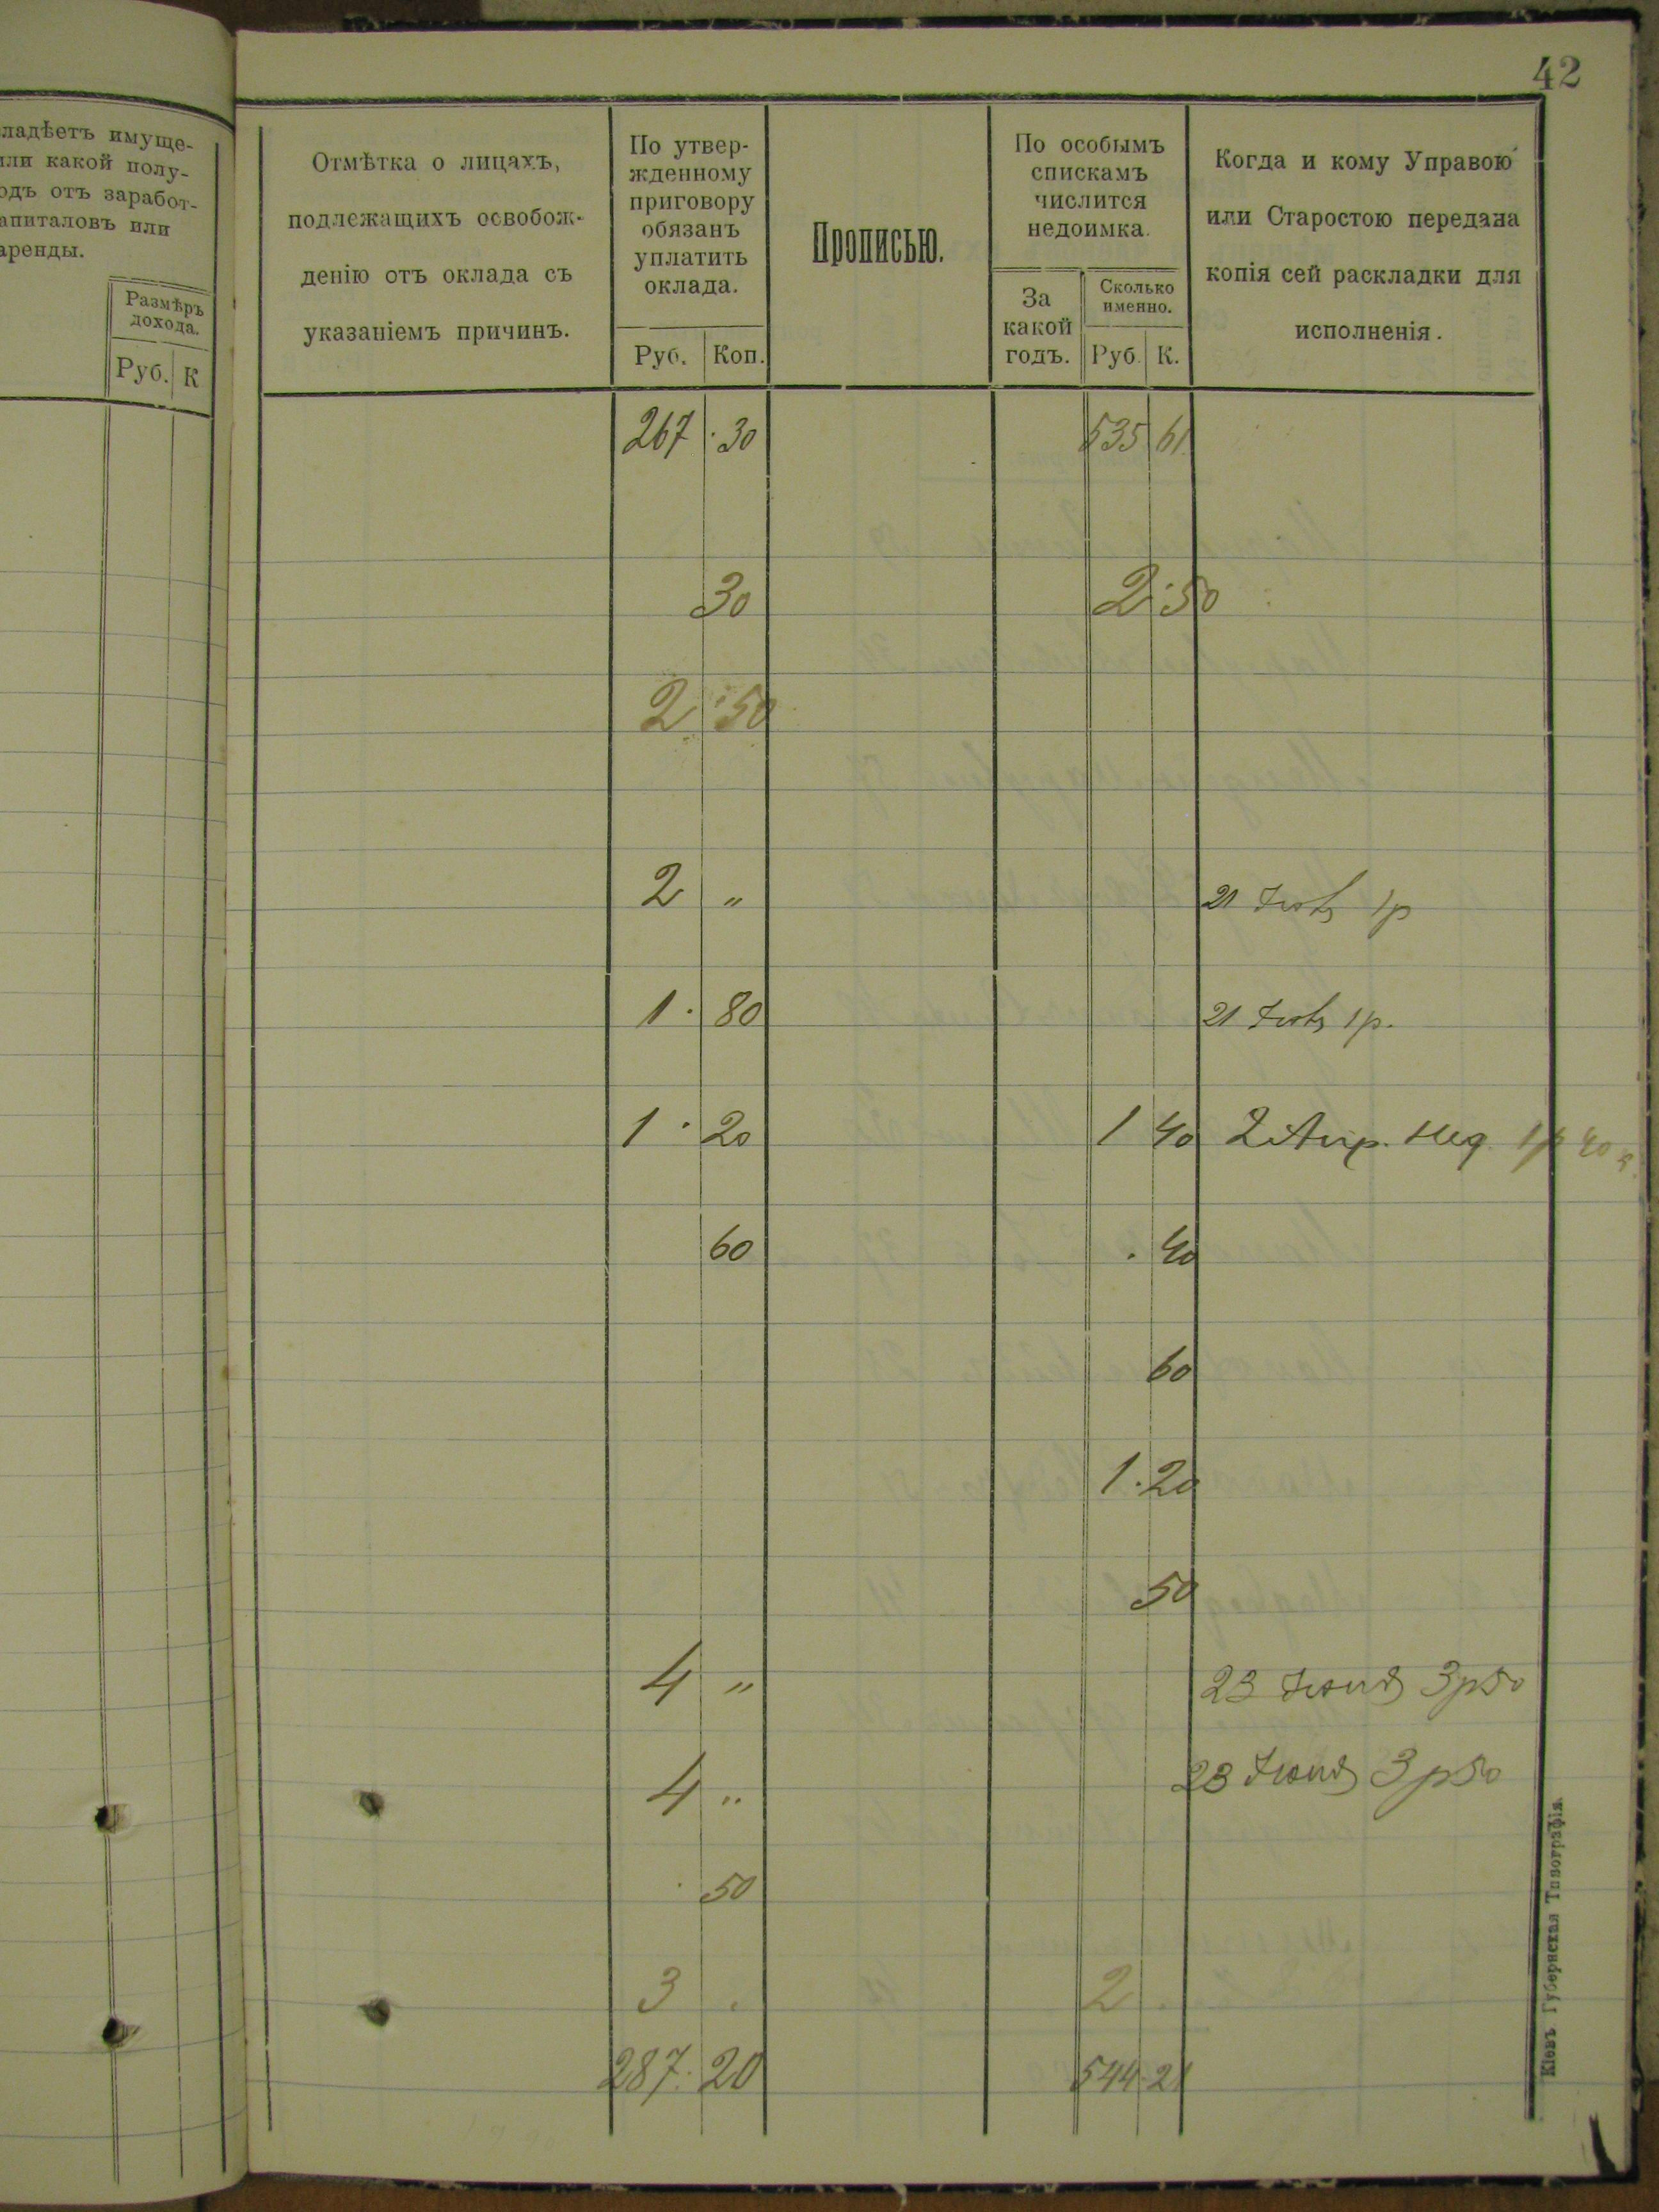 42
ладѣетъ имуще-
или какой полу-
одъ отъ заработ-
апиталовъ или
аренды.
Размѣръ
дохода.
Руб. К
Отмѣтка о лицахъ,
подлежащихъ освобож-
денію отъ оклада съ
указаніемъ причинъ.
По утвер-
жденному
приговору
обязанъ
уплатить
оклада.
Руб. Коп.
Прописью.
По особымъ
спискамъ
числится
недоимка.
За
какой
годъ.
Сколько
именно.
Руб. К.
Когда и кому Управою
или Старостою передана
копія сей раскладки для
исполненія.
267 30 535 61
30 2 50
2 50
2 " 21 1р
1 80 21 1р.
1 20 1 40 2 Апр. Нед. 1р 40 к
60 40
60
1 20
50
4 " 23 Іюня 3р50
4 " 23 Іюня 3р50
50
3 2
287 20 544 21
Кіевъ Губернская Типографія.